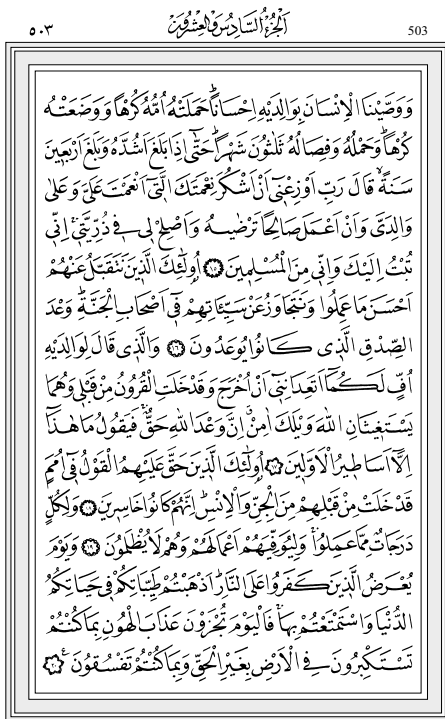 ٥٠٣ الجزء السادس والعشرون 503
وَوَصَّيْنَا الْاِنْسَانَ بِوَالِدَيْهِ اِحْسَانًاۜ حَمَلَتْهُ اُمُّهُ كُرْهًا وَوَضَعَتْهُ
كُرْهًاۜ وَحَمْلُهُ وَفِصَالُهُ ثَلٰثُونَ شَهْرًاۜ حَتّٰٓى اِذَا بَلَغَ اَشُدَّهُ وَبَلَغَ اَرْبَعِينَ
سَنَةًۙ قَالَ رَبِّ اَوْزِعْنٓى اَنْ اَشْكُرَ نِعْمَتَكَ الَّتٓى اَنْعَمْتَ عَلَىَّ وَعَلٰى
وَالِدَىَّ وَاَنْ اَعْمَلَ صَالِحًا تَرْضٰيهُ وَاَصْلِحْ لٖى فٖى ذُرِّيَّتٖىۚ اِنّٖى
تُبْتُ اِلَيْكَ وَاِنّٖى مِنَ الْمُسْلِمٖينَ ﴿١٥﴾ اُولٰٓئِكَ الَّذٖينَ نَتَقَبَّلُ عَنْهُمْ
اَحْسَنَ مَا عَمِلُوا وَنَتَجَاوَزُ عَنْ سَيِّـَٔاتِهِمْ فٖٓى اَصْحَابِ الْجَنَّةِۜ وَعْدَ
الصِّدْقِ الَّذٖى كَانُوا يُوعَدُونَ ﴿١٦﴾ وَالَّذٖى قَالَ لِوَالِدَيْهِ
اُفٍّ لَكُمَٓا اَتَعِدَانِنٖٓى اَنْ اُخْرَجَ وَقَدْ خَلَتِ الْقُرُونُ مِنْ قَبْلٖىۚ وَهُمَا
يَسْتَغٖيثَانِ اللّٰهَ وَيْلَكَ اٰمِنْۗ اِنَّ وَعْدَ اللّٰهِ حَقٌّۚ فَيَقُولُ مَا هٰذَٓا
اِلَّٓا اَسَاطٖيرُ الْاَوَّلٖينَ ﴿١٧﴾ اُولٰٓئِكَ الَّذٖينَ حَقَّ عَلَيْهِمُ الْقَوْلُ فٖٓى اُمَمٍ
قَدْ خَلَتْ مِنْ قَبْلِهِمْ مِنَ الْجِنِّ وَالْاِنْسِۜ اِنَّهُمْ كَانُوا خَاسِرٖينَ ﴿١٨﴾ وَلِكُلٍّ
دَرَجَاتٌ مِمَّا عَمِلُواۚ وَلِيُوَفِّيَهُمْ اَعْمَالَهُمْ وَهُمْ لَا يُظْلَمُونَ ﴿١٩﴾ وَيَوْمَ
يُعْرَضُ الَّذٖينَ كَفَرُوا عَلَى النَّارِۜ اَذْهَبْتُمْ طَيِّبَاتِكُمْ فٖى حَيَاتِكُمُ
الدُّنْيَا وَاسْتَمْتَعْتُمْ بِهَاۚ فَالْيَوْمَ تُجْزَوْنَ عَذَابَ الْهُونِ بِمَا كُنْتُمْ
تَسْتَكْبِرُونَ فِى الْاَرْضِ بِغَيْرِ الْحَقِّ وَبِمَا كُنْتُمْ تَفْسُقُونَ ﴿٢٠﴾